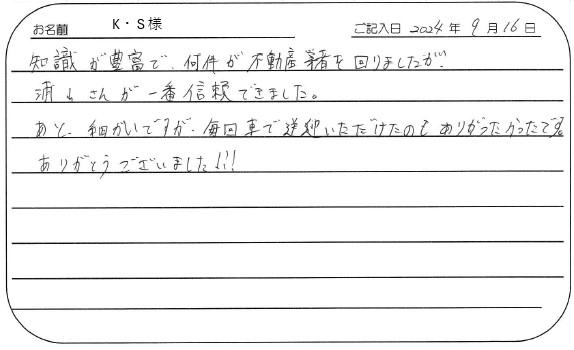 お名前 K・S様 ご記入日 2024年 9月16日
知識が豊富で、何件か不動産業者を回りましたが、
浦山さんが一番信頼できました。
あと、細かいですが、毎回車で送迎いただけたのもありがたかったです。
ありがとうございました!!!